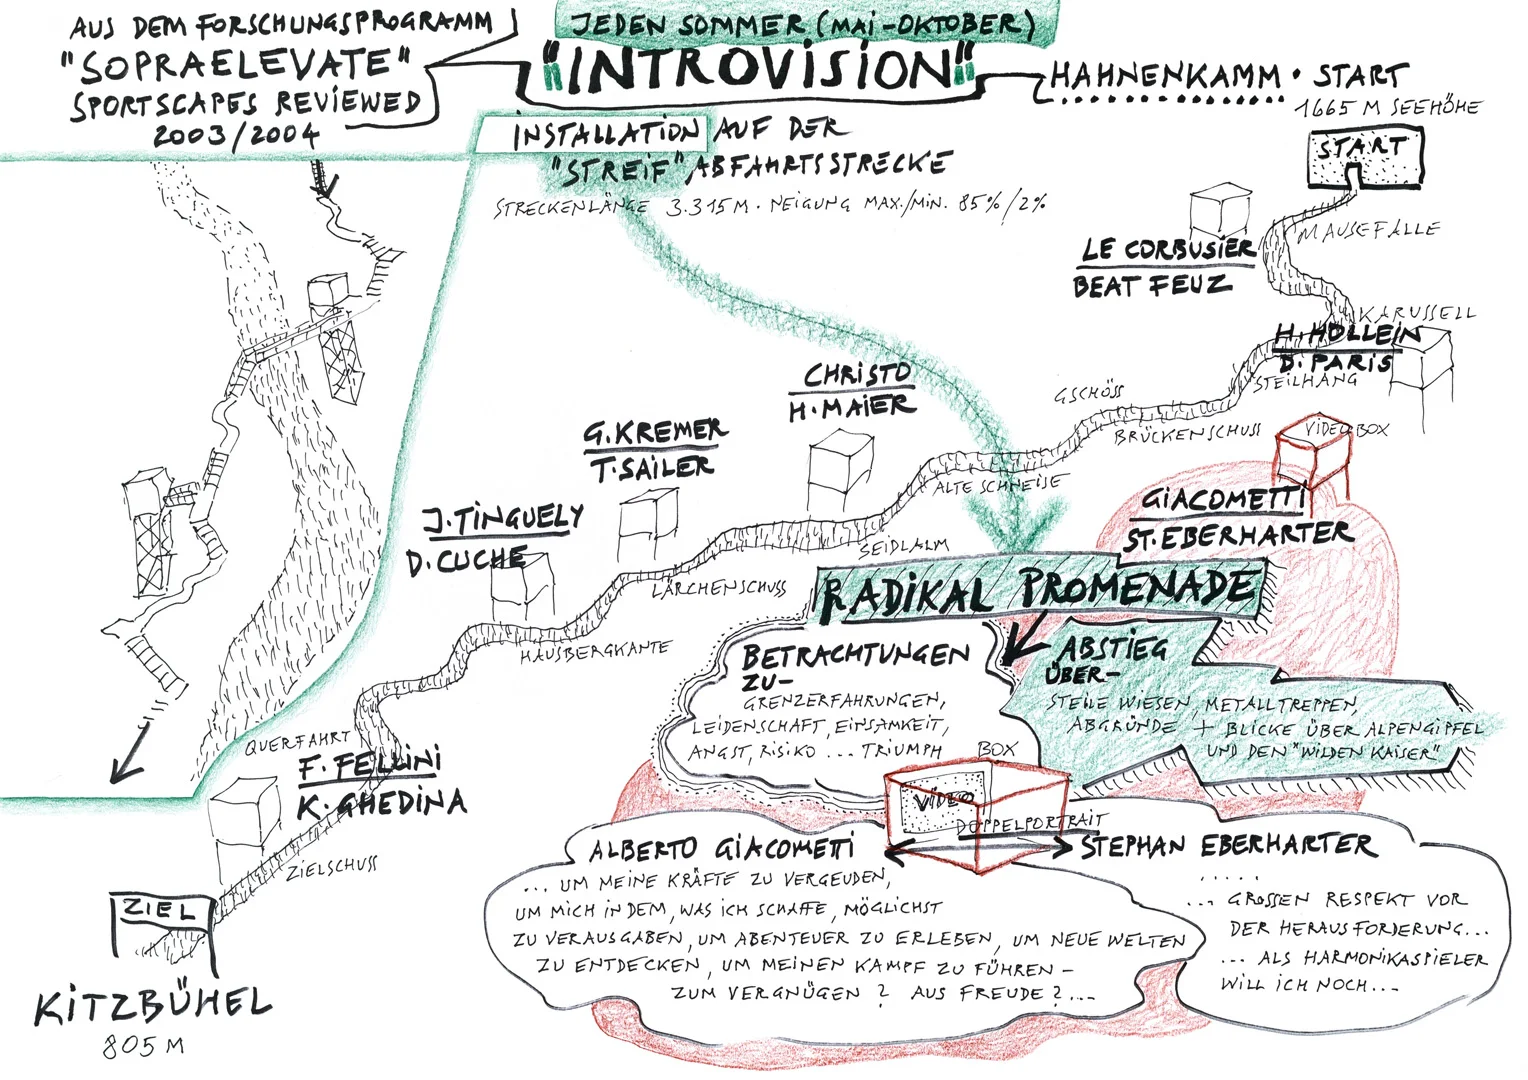 AUS DEM FORSCHUNGSPROGRAMM
"SOPRAELEVATE"
SPORTSCAPES REVIEWED
2003/2004
JEDEN SOMMER (MAI-OKTOBER)
"INTROVISION"
HAHNENKAMM · START
1665 M SEEHÖHE
START
INSTALLATION AUF DER
"STREIF" ABFAHRTSSTRECKE
STRECKENLÄNGE 3.315 M · NEIGUNG MAX./MIN. 85%/2%
MAUSEFALLE
LE CORBUSIER
BEAT FEUZ
KARUSSELL
H. HOLLEIN
D. PARIS
STEILHANG
GSCHÖSS
BRÜCKENSCHUSS
CHRISTO
H. MAIER
ALTE SCHNEISE
VIDEOBOX
GIACOMETTI
ST. EBERHARTER
G. KREMER
T. SAILER
SEIDLALM
J. TINGUELY
D. CUCHE
LÄRCHENSCHUSS
HAUSBERGKANTE
RADIKAL PROMENADE
BETRACHTUNGEN
ZU-
GRENZERFAHRUNGEN,
LEIDENSCHAFT, EINSAMKEIT,
ANGST, RISIKO ... TRIUMPH
ABSTIEG
ÜBER-
STEILE WIESEN, METALLTREPPEN,
ABGRÜNDE + BLICKE ÜBER ALPENGIPFEL
UND DEN "WILDEN KAISER"
QUERFAHRT
F. FELLINI
K. GHEDINA
ZIELSCHUSS
ZIEL
KITZBÜHEL
805 M
BOX
VIDEO
DOPPELPORTRAIT
ALBERTO GIACOMETTI
... UM MEINE KRÄFTE ZU VERGEUDEN,
UM MICH IN DEM, WAS ICH SCHAFFE, MÖGLICHST
ZU VERAUSGABEN, UM ABENTEUER ZU ERLEBEN, UM NEUE WELTEN
ZU ENTDECKEN, UM MEINEN KAMPF ZU FÜHREN -
ZUM VERGNÜGEN? AUS FREUDE?...
STEPHAN EBERHARTER
.....
... GROSSEN RESPEKT VOR
DER HERAUSFORDERUNG...
... ALS HARMONIKASPIELER
WILL ICH NOCH...